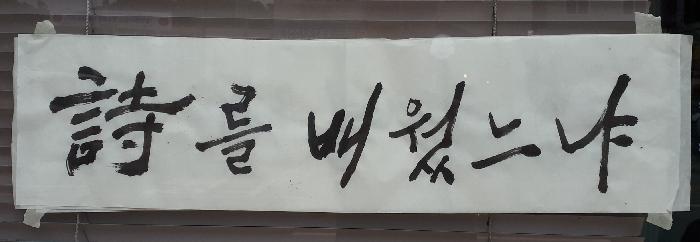 詩를 배웠느냐